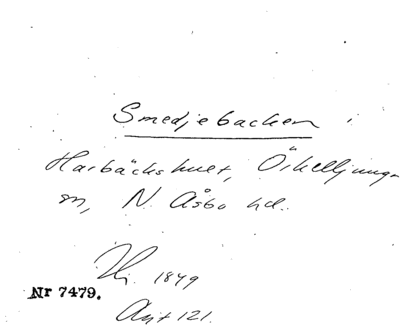 Smedjebacken
Harbäckshult, Örkelljunga
sn, N. Åsbo hd.
1849
Nr 7479.
121.